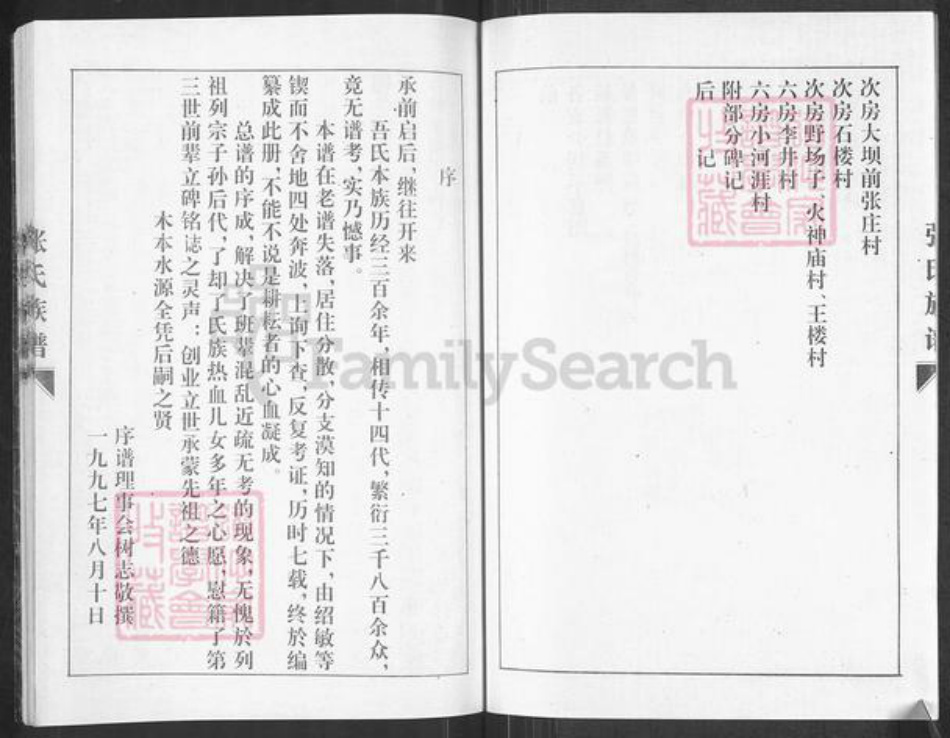 次房大坝前张庄村
次房石楼村
次房野场子、火神庙村、王楼村
六房李井村
六房小河涯村
附部分碑记
后 记
张氏族谱
序
承前启后,继往开来
吾氏本族历经三百余年,相传十四代,繁衍三千八百余众,
竟无谱考,实乃憾事。
本谱在老谱失落,居住分散,分支漠知的情况下,由绍敏等
锲而不舍地四处奔波,上询下查,反复考证,历时七载,终於编
纂成此册,不能不说是耕耘者的心血凝成。
总谱的序成,解决了班辈混乱近疏无考的现象,无愧於列
祖列宗子孙后代,了却了氏族热血儿女多年之心愿,慰籍了第
三世前辈立碑铭誌之灵声:创业立世承蒙先祖之德
木本水源全凭后嗣之贤
序谱理事会树志敬撰
一九九七年八月十日
张氏族谱
FamilySearch